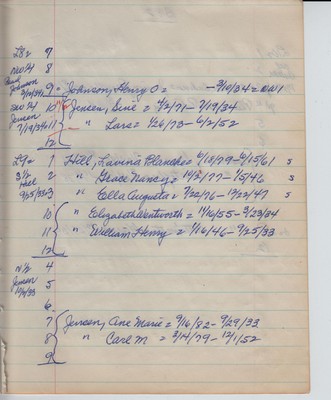 LB2 7
No 1/4 8
Johnson 9 Johnson, Henry O = - 3/10/34 = ONN1
So 1/4 10 Jensen, Sine = 4/2/71 - 7/19/34
Jensen 7/19/34 11 " Lars = 1/26/73 - 6/2/52
12
L9= 1 Hill, Lavina Blanche = 6/10/79 - 6/15/61 S
S 1/2 2 " Grace Nancy = 10/3/77 - 1/5/46 S
Hill 9/25/33 3 " Ella Augusta = 7/22/76 - 12/22/47 S
10 " Elizabeth Wentworth = 11/16/55 - 3/23/34
11 " William Henry = 1/16/46 - 9/25/33
12
N 1/2 4
Jensen 5
6
7 Jensen, Ane Marie = 9/16/82 - 9/29/33
8 " Carl M = 3/14/79 - 12/1/52
9